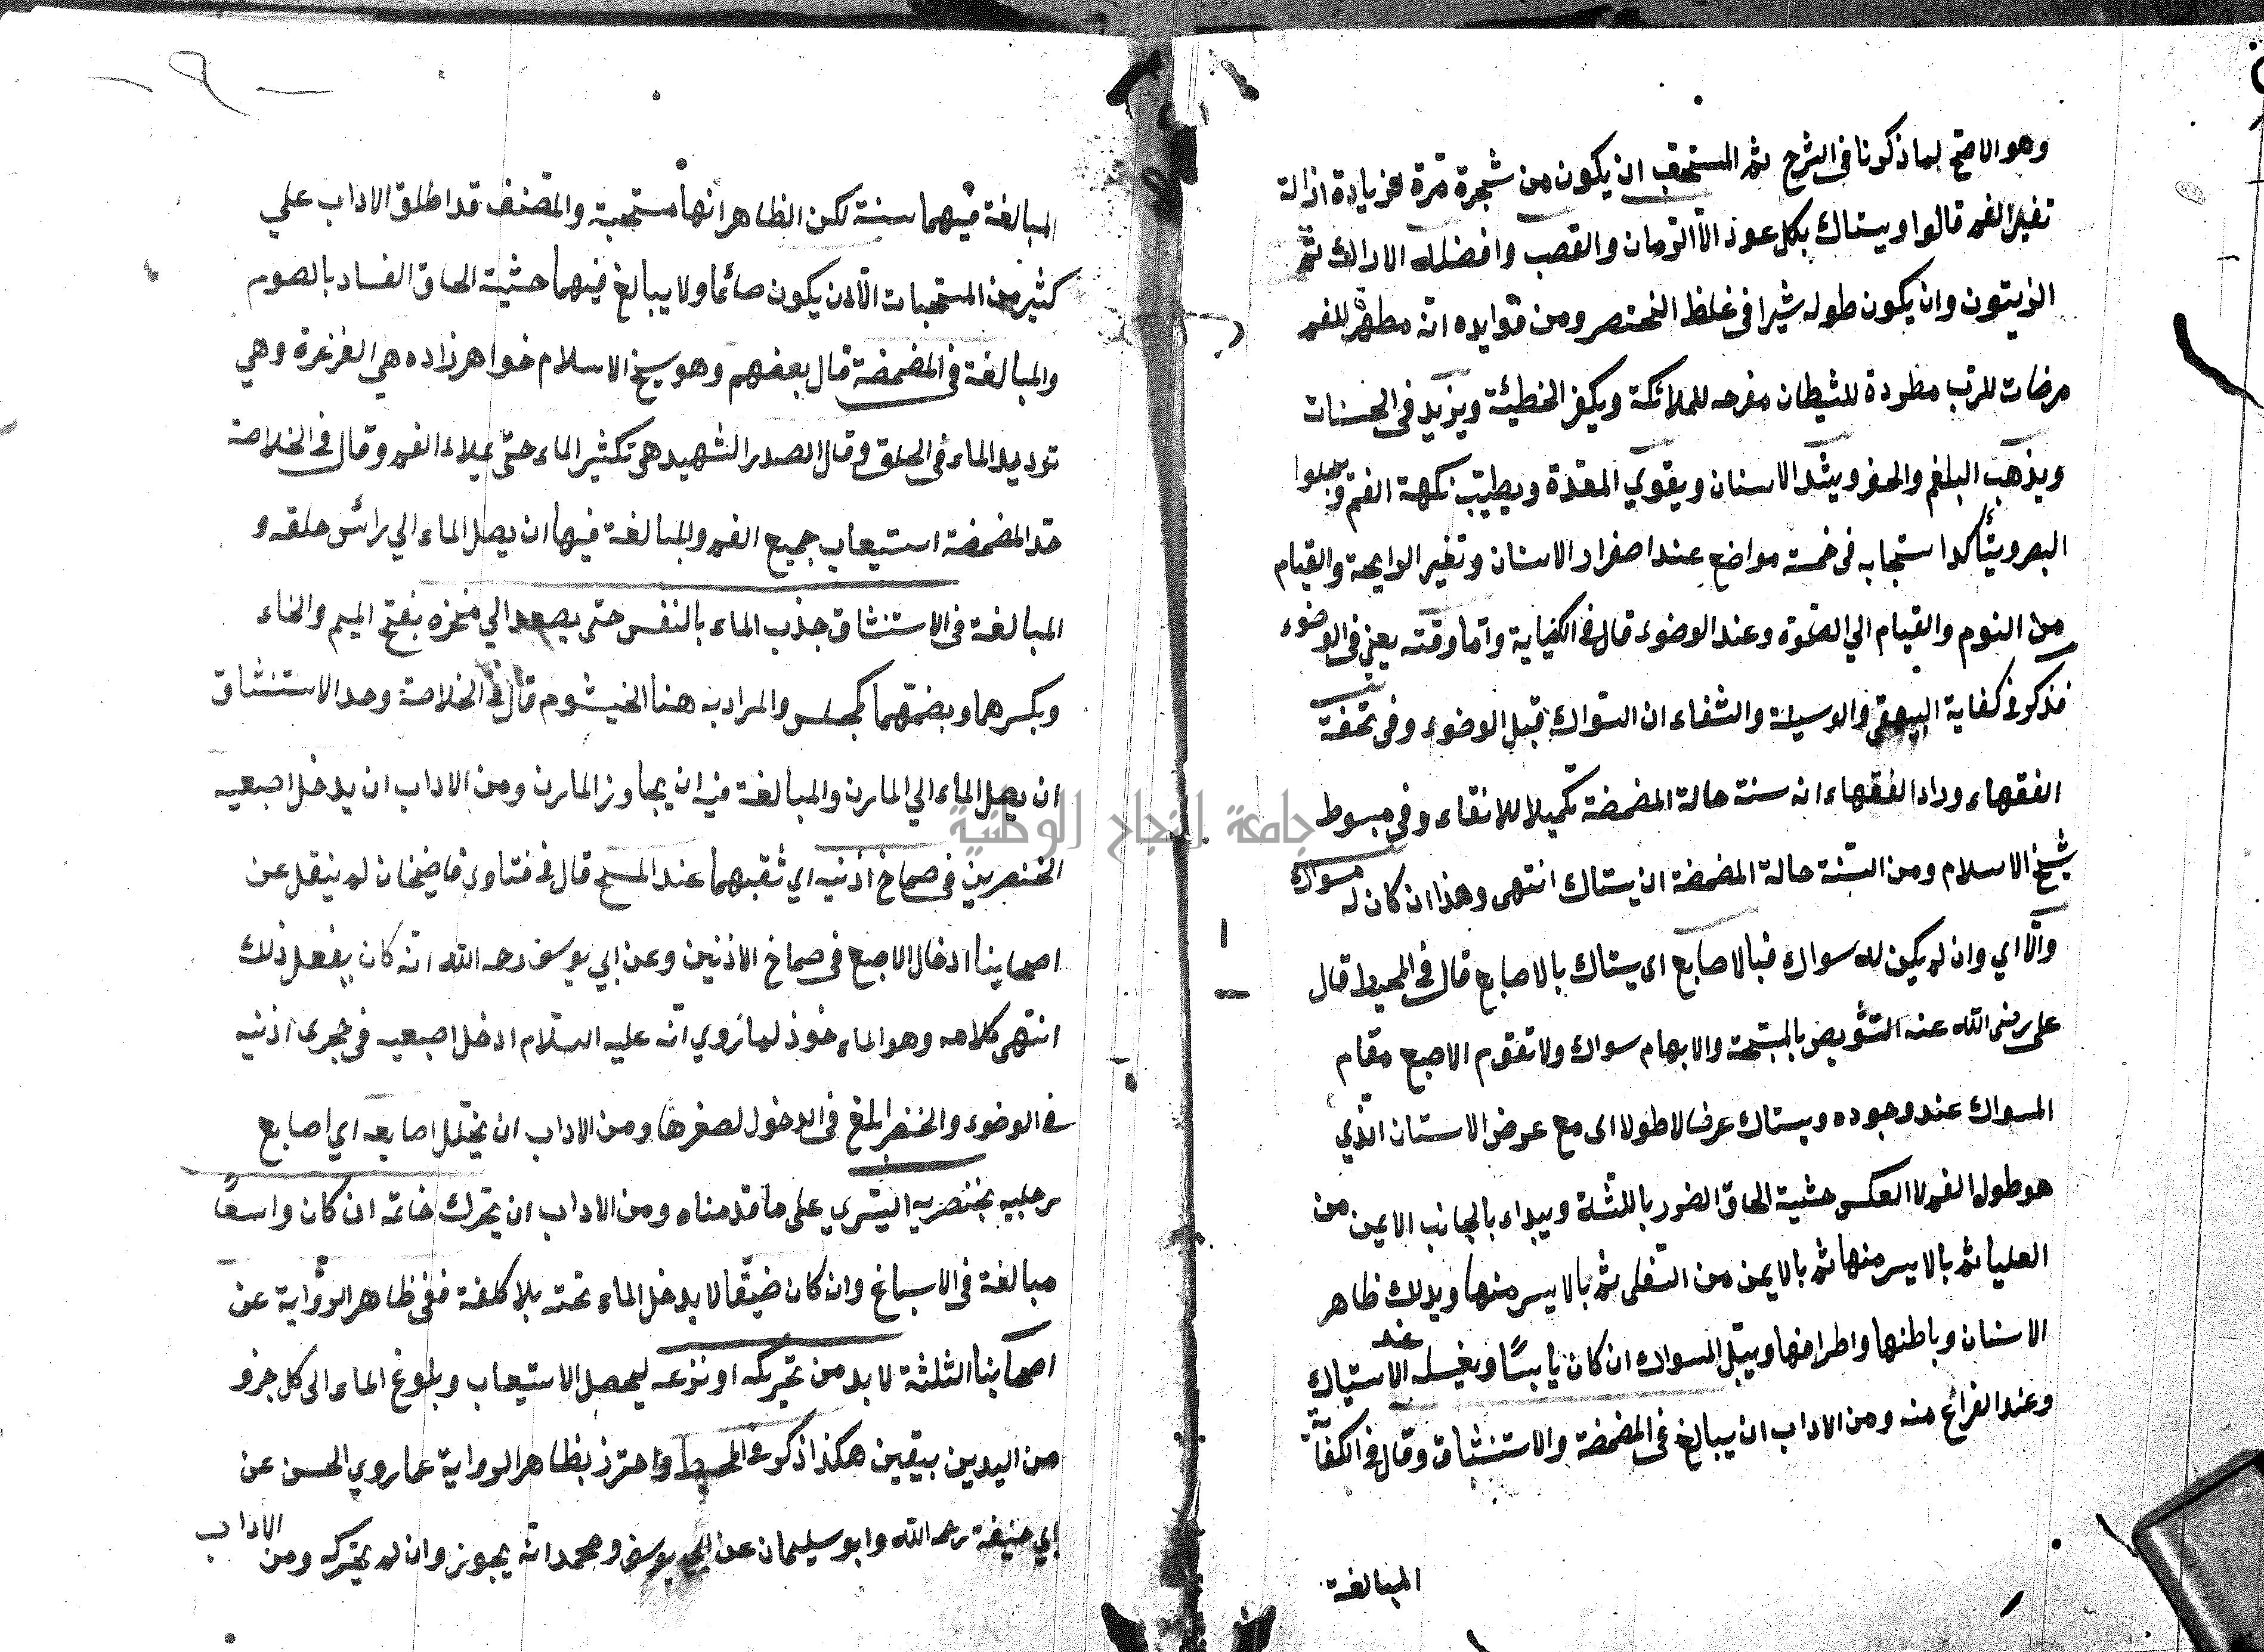 وهو الاصح لما ذكرنا فى الشرح ثم المستحب ان يكون من شجرة مرة لزيادة ازالة
تغير الفم قالوا ويستاك بكل عود الا الرمان والقصب وافضله الاراك ثم
الزيتون وان يكون طوله شبرا فى غلظ الخنصر ومن فوايده انه مطهر للفم
مرضات للرب مطردة للشيطان مفرحه للملائكة ويكفر الخطيئة ويزيد فى الحسنات
ويذهب البلغم والحفر ويشد الاسنان ويقوي المعدة ويطيب نكهة الفم ويجلوا
البصر ويتأكد استحبابه فى خمسة مواضع عند اصفرار الاسنان وتغير الرايحة والقيام
من النوم والقيام الي الصلوة وعند الوضوء قال فى الكفاية واما وقته يعنى فى الوضوء
فذكر فى كفاية البيهقى والوسيلة والشفاء ان السواك قبل الوضوء وفى تحفة
الفقهاء وزاد الفقهاء انه سنة حالة المضمضة تكميلا للانقاء وفى مبسوط
شيخ الاسلام ومن السنة حالة المضمضة ان يستاك انتهى وهذا ان كان له مسواك
والا اي وان لم يكن له سواك فبالاصابع اى يستاك بالاصابع قال فى المحيط قال
على رضى الله عنه التشويص بالمسبحة والابهام سواك ولا تقوم الاصبع مقام
المسواك عند وجوده ويستاك عرضا لا طولا اى مع عرض الاسنان الذي
هو طول الفم لا العكس خشية الحاق الضرر باللثة ويبداء بالجانب الايمن من
العليا ثم بالايسر منها ثم بالايمن من السفلى ثم بالايسر منها ويدلك ظاهر
الاسنان وباطنها واطرافها ويبل المسواك ان كان يابسًا ويغسله عند الاستياك
وعند الفراغ منه ومن الاداب ان يبالغ فى المضمضة والاستنشاق وقال فى الكفاية
المبالغة
-٩-
المبالغة فيهما سنة لكن الظاهر انها مستحبة والمصنف قد اطلق الاداب علي
كثير من المستحبات الا ان يكون صائما ولا يبالغ فيهما خشية الحاق الفساد بالصوم
والمبالغة فى المضمضة قال بعضهم وهو شيخ الاسلام خواهر زاده هي الغرغرة وهي
ترديد الماء في الحلق وقال الصدر الشهيد هى تكثير الماء حتى يملاء الفم وقال فى الخلاصة
حد المضمضة استيعاب جميع الفم والمبالغة فيها ان يصل الماء الي رائس حلقه و
المبالغة فى الاستنشاق جذب الماء بالنفس حتى يصعد الي منخره بفتح الميم والخاء
وبكسرهما وبضمهما كمجلس والمراد به هنا الخيشوم قال فى الخلاصة وحد الاستنشاق
ان يصل الماء الي المارن والمبالغة فيه ان يجاوز المارن ومن الاداب ان يدخل اصبعيه
الخنصرين فى صماخ اذنيه اي ثقبهما عند المسح قال فى فتاوى قاضيخان لم ينقل عن
اصحابنا ادخال الاصبع فى صماخ الاذنين وعن ابي يوسف رحمه الله انه كان يفعل ذلك
انتهى كلامه وهو الماءخوذ لما روي انه عليه السلام ادخل اصبعيه فى مجرى اذنيه
فى الوضوء والخنصر ابلغ فى الدخول لصغرها ومن الاداب ان يخلل اصابعه اي اصابع
رجليه بخنصر يده اليسري على ما قدمناه ومن الاداب ان يحرك خاتمه ان كان واسعًا
مبالغة فى الاسباغ وان كان ضيقًا لا يدخل الماء تحته بلا كلفة ففى ظاهر الرواية عن
اصحابنا الثلثة لا بد من تحريكه او نزعه ليحصل الاستيعاب وبلوغ الماء الى كل جزو
من اليدين بيقين هكذا ذكر فى المحيط واحترز بظاهر الرواية عما روي الحسن عن
ابي حنيفة رحمه الله وابو سليمان عن ابي يوسف ومحمد انه يجوز وان لم يحركه ومن الاداب
جامعة النجاح الوطنية